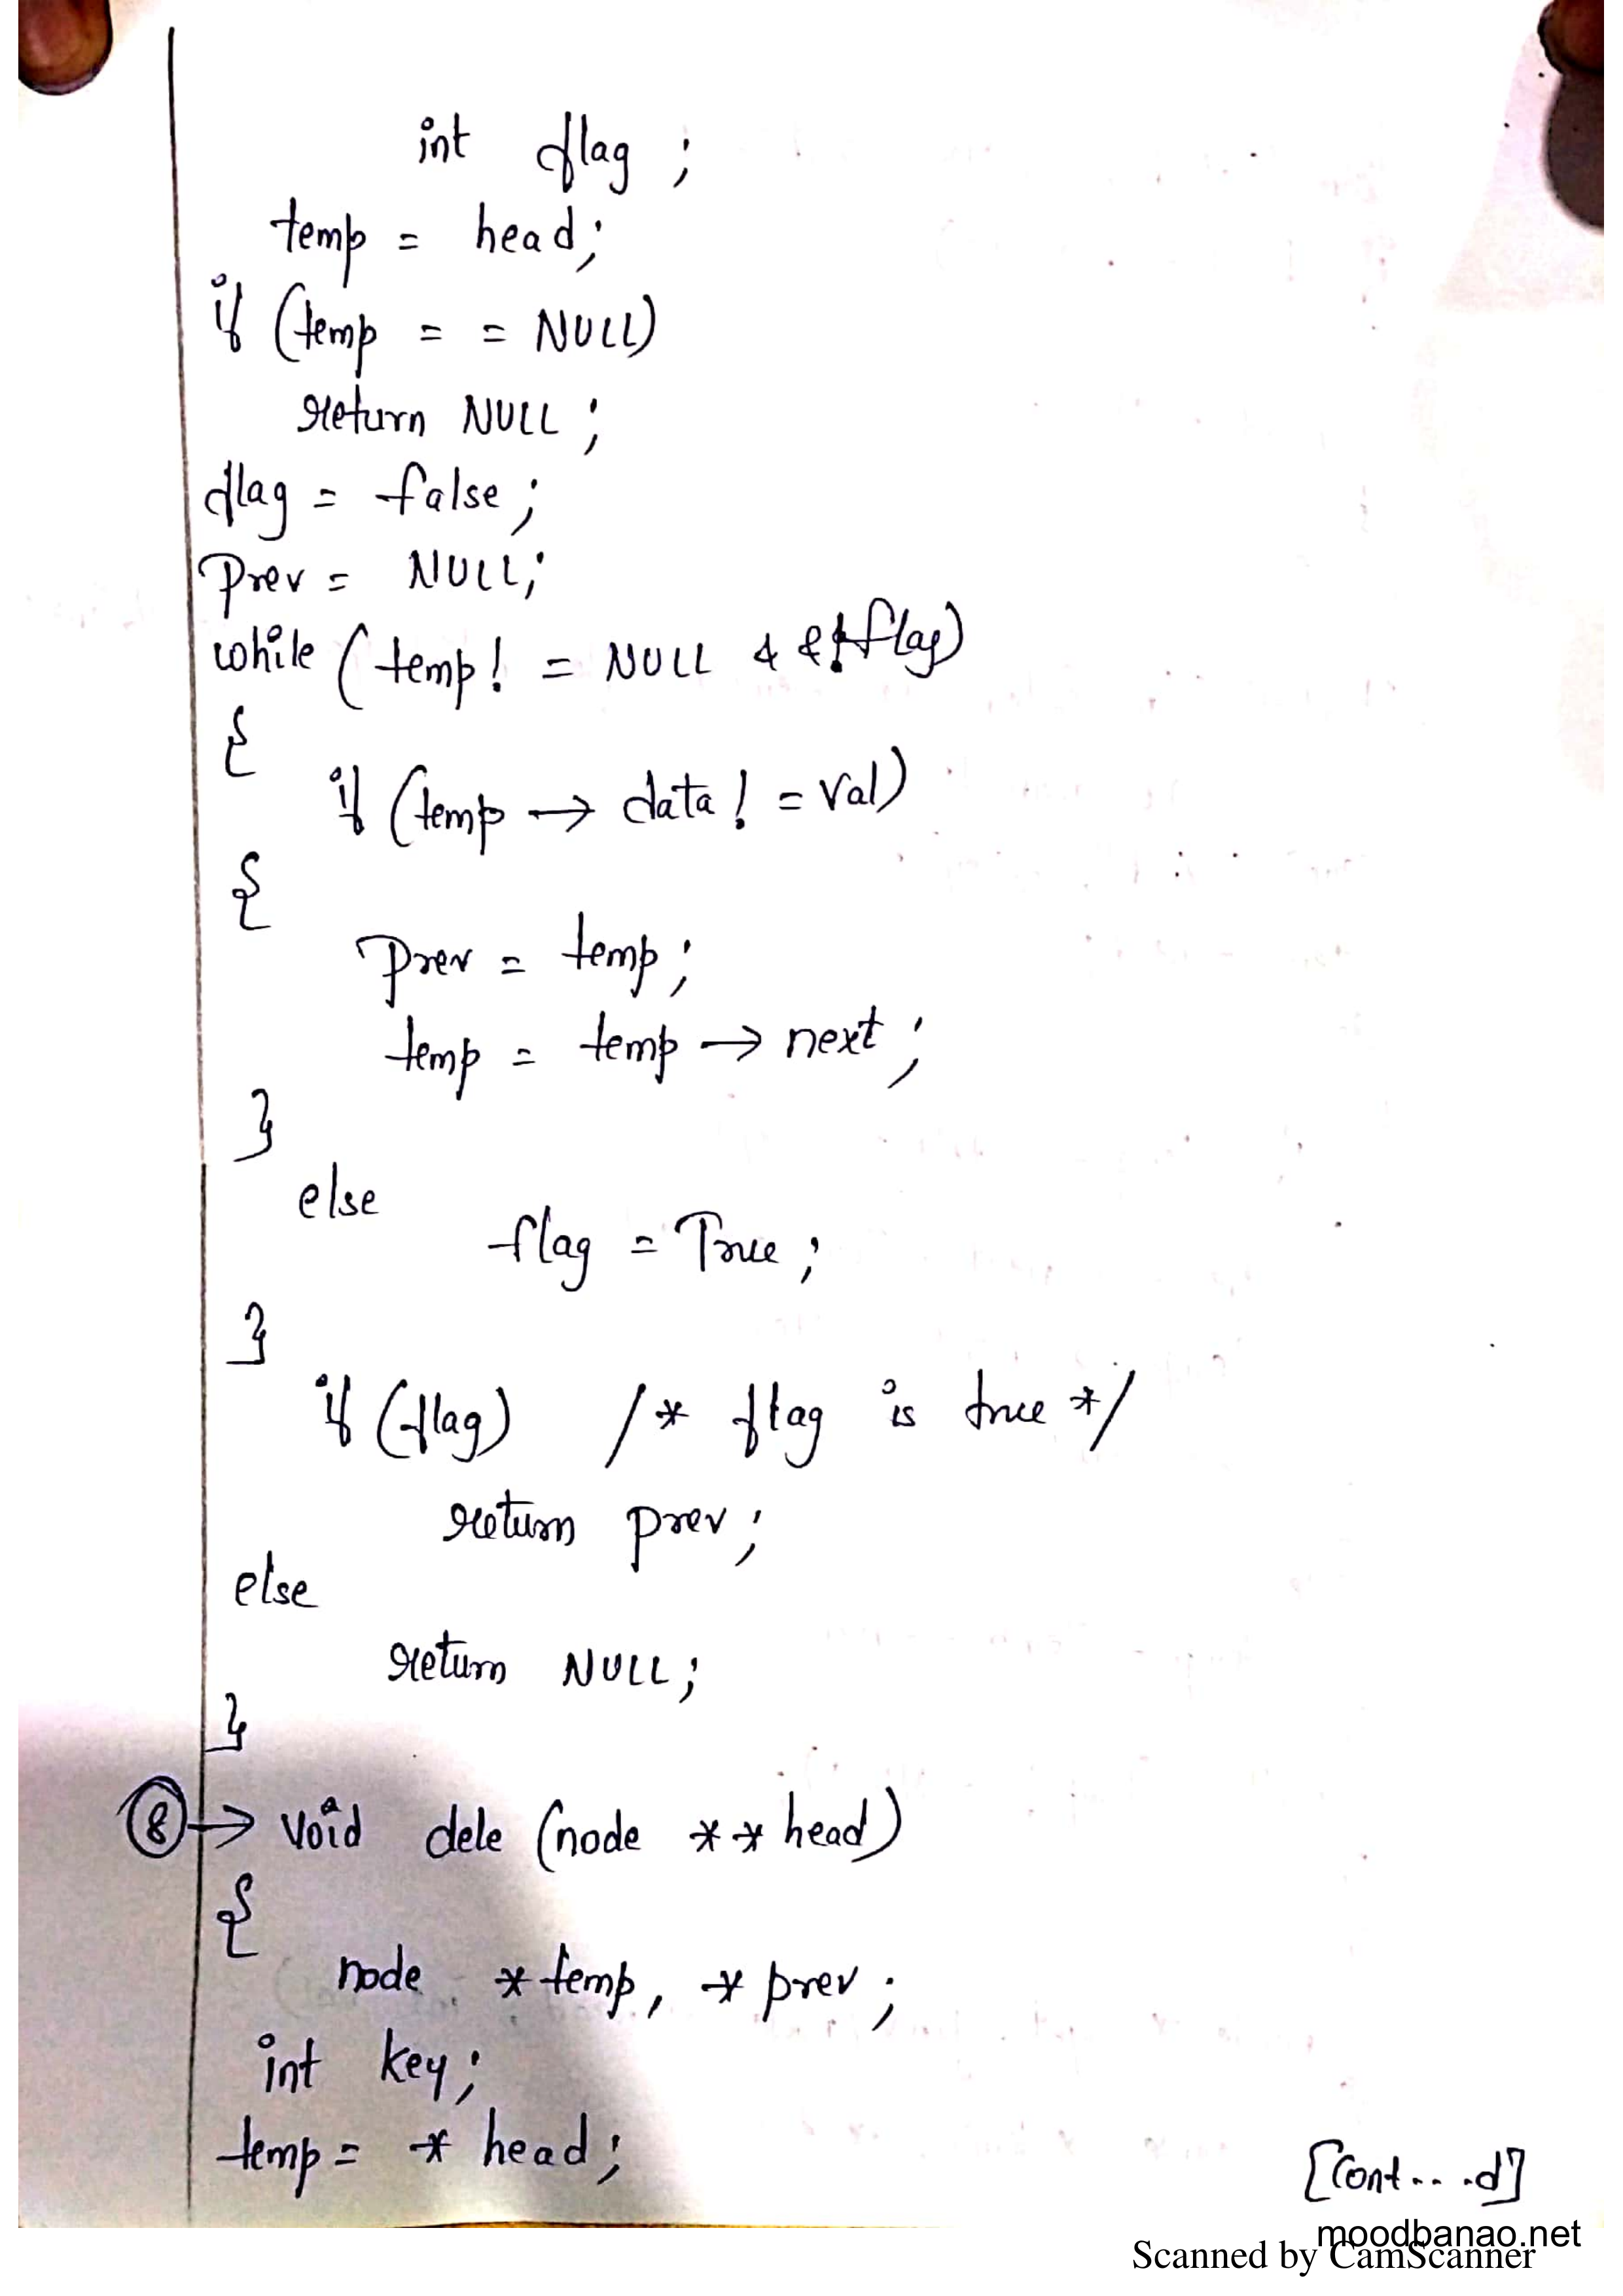 int flag ;
temp = head;
if (temp = = NULL)
return NULL ;
flag = false ;
Prev = NULL;
while ( temp! = NULL & &!flag)
{
if (temp → data! = val)
{
Prev = temp;
temp = temp → next ;
}
else
flag = True ;
}
if (flag) /* flag is true */
return prev ;
else
return NULL;
}
⑧→ void dele (node ** head)
{
node *temp, *prev ;
int key;
temp = * head;
[Cont... .d]
moodbanao.net
Scanned by CamScanner